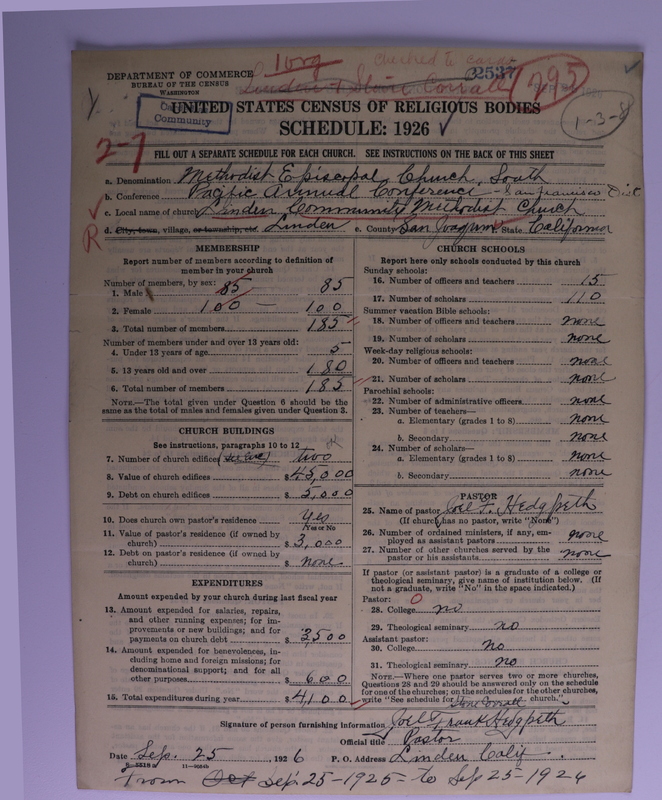 1 org
checked to cards
22537
DEPARTMENT OF COMMERCE
BUREAU OF THE CENSUS
WASHINGTON
Linden & Stone Corrall
1295
Community
UNITED STATES CENSUS OF RELIGIOUS BODIES
SCHEDULE: 1926
1-3-8
2-7
FILL OUT A SEPARATE SCHEDULE FOR EACH CHURCH. SEE INSTRUCTIONS ON THE BACK OF THIS SHEET
a. Denomination Methodist Episcopal Church, South
b. Conference Pacific Annual Conference - San Francisco Dist
c. Local name of church Linden Community Methodist Church
R
d. City, town, village, or township, etc. Linden e. County San Joaquin State California
MEMBERSHIP
Report number of members according to definition of
member in your church
Number of members, by sex:
1. Male 85 85
2. Female 100 — 100
3. Total number of members 185
Number of members under and over 13 years old:
4. Under 13 years of age 5
5. 13 years old and over 180
6. Total number of members 185
NOTE.—The total given under Question 6 should be the
same as the total of males and females given under Question 3.
CHURCH BUILDINGS
See instructions, paragraphs 10 to 12
7. Number of church edifices two
8. Value of church edifices $45,000
9. Debt on church edifices $5,000
10. Does church own pastor's residence yes
Yes or No
11. Value of pastor's residence (if owned by
church) $3,000
12. Debt on pastor's residence (if owned by
church) $ none
EXPENDITURES
Amount expended by your church during last fiscal year
13. Amount expended for salaries, repairs,
and other running expenses; for im-
provements or new buildings; and for
payments on church debt $3500
14. Amount expended for benevolences, in-
cluding home and foreign missions; for
denominational support; and for all
other purposes $600
15. Total expenditures during year $4,100
CHURCH SCHOOLS
Report here only schools conducted by this church
Sunday schools:
16. Number of officers and teachers 15
17. Number of scholars 110
Summer vacation Bible schools:
18. Number of officers and teachers none
19. Number of scholars none
Week-day religious schools:
20. Number of officers and teachers none
21. Number of scholars none
Parochial schools:
22. Number of administrative officers none
23. Number of teachers—
a. Elementary (grades 1 to 8) none
b. Secondary none
24. Number of scholars—
a. Elementary (grades 1 to 8) none
b. Secondary none
PASTOR
25. Name of pastor Joel F. Hedgpeth
(If church has no pastor, write "None")
26. Number of ordained ministers, if any, em-
ployed as assistant pastors none
27. Number of other churches served by the
pastor or his assistants none
If pastor (or assistant pastor) is a graduate of a college or
theological seminary, give name of institution below. (If
not a graduate, write "No" in the space indicated.)
Pastor: O
28. College no
29. Theological seminary no
Assistant pastor:
30. College No
31. Theological seminary No
NOTE.—Where one pastor serves two or more churches,
Questions 28 and 29 should be answered only on the schedule
for one of the churches; on the schedules for the other churches,
write "See schedule for Stone Corrall church."
Signature of person furnishing information Joel Frank Hedgpeth
Official title Pastor
Date Sep. 25 1926 P. O. Address Linden Calif.
11—9584b
From Oct Sep 25-1925- to Sep 25-1926